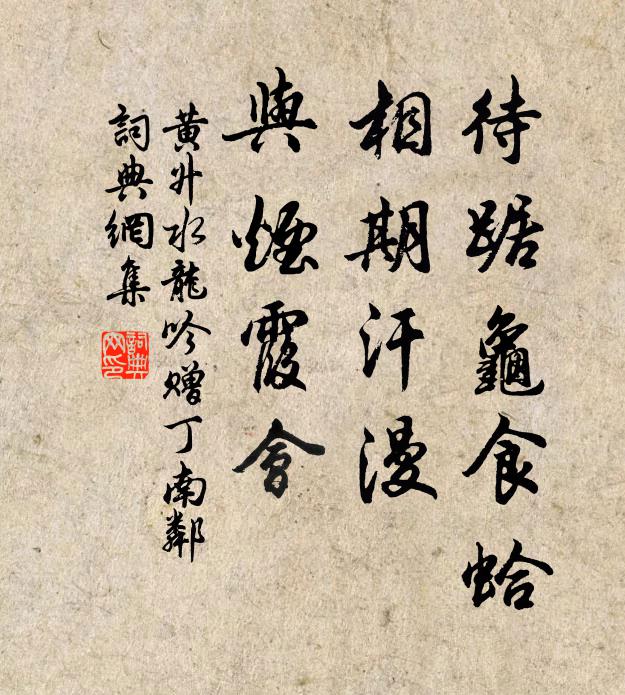 待踞龜食蛤
相期汗漫
與煙霞會
黃升水龍吟贈丁南鄰
詞典網集
詞典
网印